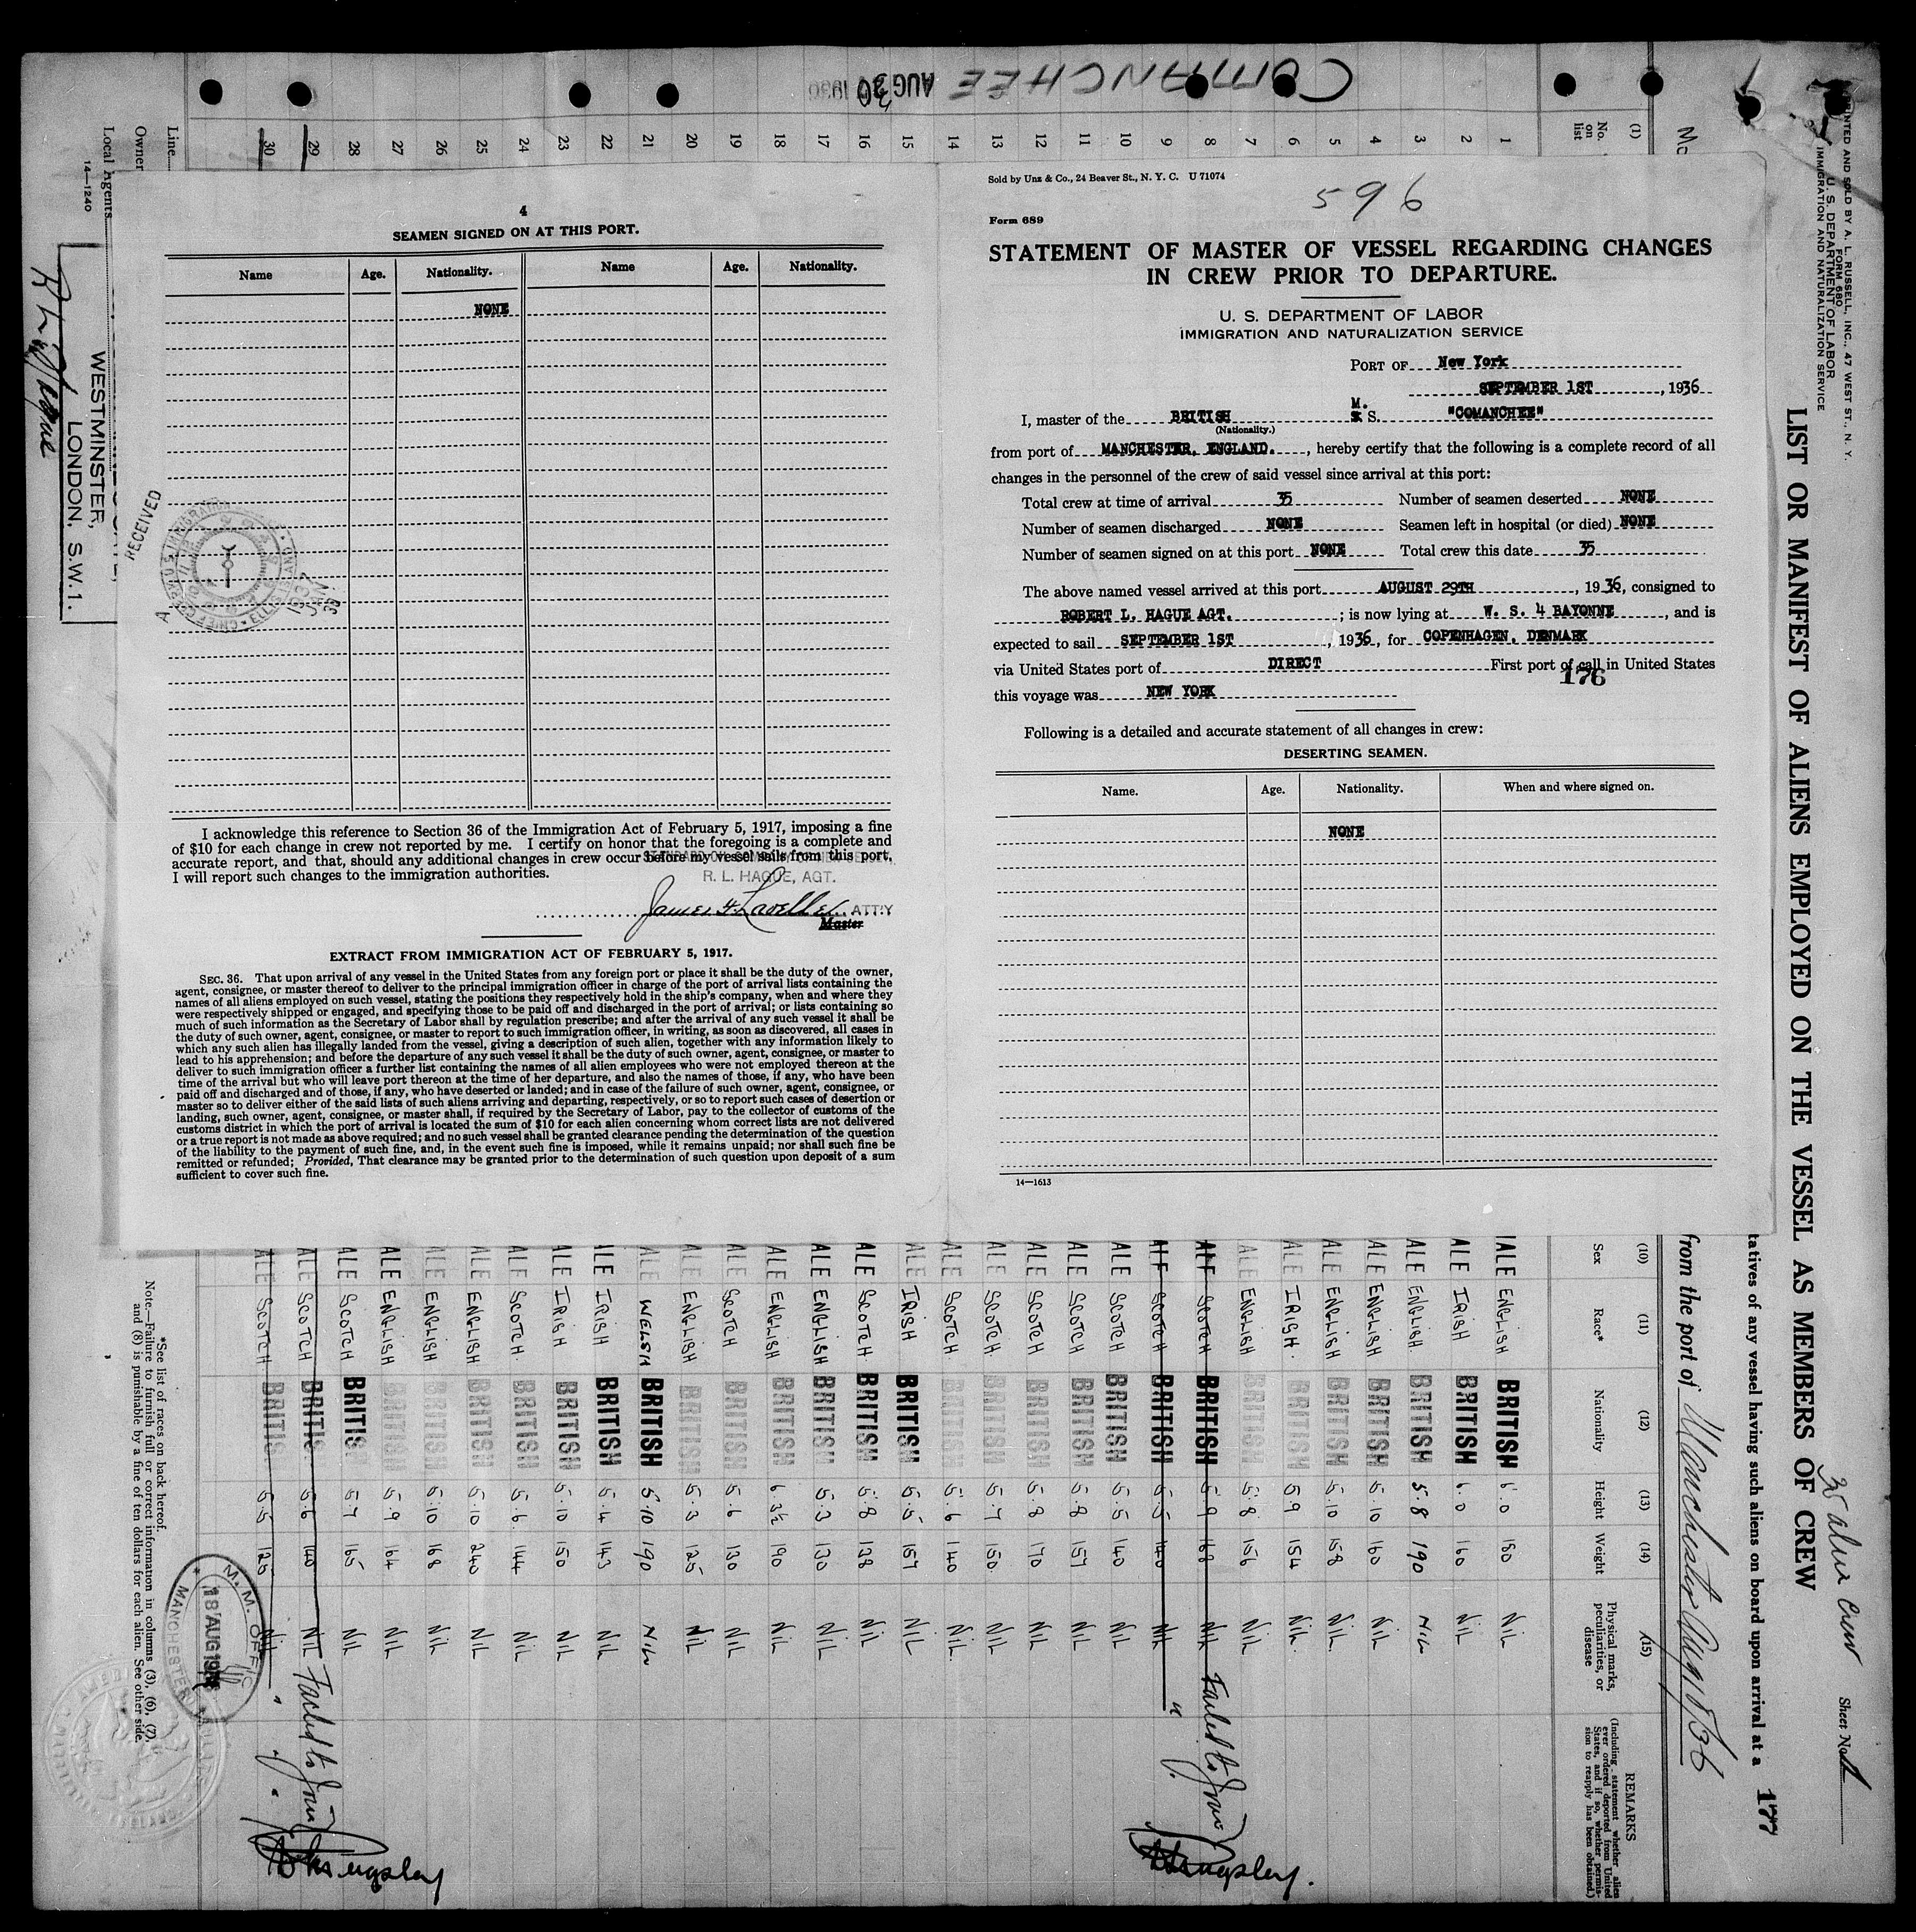 COMANCHEE AUG 30 1936
4
SEAMEN SIGNED ON AT THIS PORT.
Name Age. Nationality. Name Age. Nationality.
NONE
I acknowledge this reference to Section 36 of the Immigration Act of February 5, 1917, imposing a fine
of $10 for each change in crew not reported by me. I certify on honor that the foregoing is a complete and
accurate report, and that, should any additional changes in crew occur before my vessel sails from this port,
I will report such changes to the immigration authorities.
R. L. HAGUE, AGT.
James F. Lavelle ATT'Y
Master
EXTRACT FROM IMMIGRATION ACT OF FEBRUARY 5, 1917.
SEC. 36. That upon arrival of any vessel in the United States from any foreign port or place it shall be the duty of the owner,
agent, consignee, or master thereof to deliver to the principal immigration officer in charge of the port of arrival lists containing the
names of all aliens employed on such vessel, stating the positions they respectively hold in the ship's company, when and where they
were respectively shipped or engaged, and specifying those to be paid off and discharged in the port of arrival; or lists containing so
much of such information as the Secretary of Labor shall by regulation prescribe; and after the arrival of any such vessel it shall be
the duty of such owner, agent, consignee, or master to report to such immigration officer, in writing, as soon as discovered, all cases in
which any such alien has illegally landed from the vessel, giving a description of such alien, together with any information likely to
lead to his apprehension; and before the departure of any such vessel it shall be the duty of such owner, agent, consignee, or master to
deliver to such immigration officer a further list containing the names of all alien employees who were not employed thereon at the
time of the arrival but who will leave port thereon at the time of her departure, and also the names of those, if any, who have been
paid off and discharged and of those, if any, who have deserted or landed; and in case of the failure of such owner, agent, consignee, or
master so to deliver either of the said lists of such aliens arriving and departing, respectively, or so to report such cases of desertion or
landing, such owner, agent, consignee, or master shall, if required by the Secretary of Labor, pay to the collector of customs of the
customs district in which the port of arrival is located the sum of $10 for each alien concerning whom correct lists are not delivered
or a true report is not made as above required; and no such vessel shall be granted clearance pending the determination of the question
of the liability to the payment of such fine, and, in the event such fine is imposed, while it remains unpaid; nor shall such fine be
remitted or refunded; Provided, That clearance may be granted prior to the determination of such question upon deposit of a sum
sufficient to cover such fine.
Sold by Unz & Co., 24 Beaver St., N. Y. C. U 71074
596
Form 689
STATEMENT OF MASTER OF VESSEL REGARDING CHANGES
IN CREW PRIOR TO DEPARTURE.
U. S. DEPARTMENT OF LABOR
IMMIGRATION AND NATURALIZATION SERVICE
PORT OF New York
SEPTEMBER 1ST, 1936
I, master of the BRITISH M. S. "COMANCHEE"
(Nationality.)
from port of MANCHESTER, ENGLAND., hereby certify that the following is a complete record of all
changes in the personnel of the crew of said vessel since arrival at this port:
Total crew at time of arrival 35 Number of seamen deserted NONE
Number of seamen discharged NONE Seamen left in hospital (or died) NONE
Number of seamen signed on at this port NONE Total crew this date 35
The above named vessel arrived at this port AUGUST 29TH, 1936, consigned to
ROBERT L. HAGUE AGT.; is now lying at W. S. 4 BAYONNE, and is
expected to sail SEPTEMBER 1ST, 1936, for COPENHAGEN, DENMARK
via United States port of DIRECT First port of call in United States
176
this voyage was NEW YORK
Following is a detailed and accurate statement of all changes in crew:
DESERTING SEAMEN.
Name. Age. Nationality. When and where signed on.
NONE
14—1613
PRINTED AND SOLD BY A. L. RUSSELL, INC., 47 WEST ST., N. Y.
FORM 680
U. S. DEPARTMENT OF LABOR
IMMIGRATION AND NATURALIZATION SERVICE
LIST OR MANIFEST OF ALIENS EMPLOYED ON THE VESSEL AS MEMBERS OF CREW
35 alien crew Sheet No. 1
tatives of any vessel having such aliens on board upon arrival at a
177
from the port of Manchester Aug 18/36
(1) (10) (11) (12) (13) (14) (15)
No. on list Sex Race* Nationality Height Weight Physical marks, peculiarities, or disease REMARKS
(Including statement whether alien ever ordered deported from United States, and if so, whether permission to reapply has been obtained.)
1 MALE ENGLISH BRITISH 6.0 180 NIL
2 ALE IRISH BRITISH 6.0 160 NIL
3 ALE ENGLISH BRITISH 5.8 190 NIL
4 ALE ENGLISH BRITISH 5.10 160 NIL
5 ALE ENGLISH BRITISH 5.10 158 NIL
6 ALE IRISH. BRITISH 5.9 154 NIL.
7 ALE ENGLISH BRITISH 5.8 156 NIL
8 ALE SCOTCH BRITISH 5.9 168 NIL Failed to Join
9 ALE SCOTCH BRITISH 5.5 140 NIL "
10 ALE SCOTCH BRITISH 5.5 140 NIL
11 ALE SCOTCH BRITISH 5.8 157 NIL
12 ALE SCOTCH BRITISH 5.8 170 NIL
13 ALE SCOTCH. BRITISH 5.7 150 NIL
14 ALE SCOTCH. BRITISH 5.6 140 NIL.
15 ALE IRISH BRITISH 5.5 157 NIL
16 ALE SCOTCH BRITISH 5.8 138 NIL
17 ALE ENGLISH BRITISH 5.3 130 NIL
18 ALE ENGLISH BRITISH 6.3½ 190 NIL
19 ALE SCOTCH BRITISH 5.6 130 NIL
20 ALE ENGLISH BRITISH 5.3 125 NIL
21 ALE WELSH BRITISH 5.10 190 NIL
22 ALE IRISH BRITISH 5.4 143 NIL
23 ALE IRISH BRITISH 5.10 150 NIL
24 ALE SCOTCH. BRITISH 5.6 144 NIL
25 ALE ENGLISH BRITISH 5.10 240 NIL
26 ALE ENGLISH BRITISH 5.10 168 NIL
27 ALE ENGLISH BRITISH 5.9 164 NIL
28 ALE SCOTCH BRITISH 5.7 165 NIL
29 ALE SCOTCH BRITIS 5.6 140 NIL Failed to Join
30 ALE SCOTCH BRITIS 5.5 125 NIL " "
Line
Owner
Local Agents
14—1240
WESTMINSTER,
LONDON. S.W.1.
RECEIVED
*See list of races on back hereof.
Note.—Failure to furnish full or correct information in columns (3), (6), (7),
and (8) is punishable by a fine of ten dollars for each alien. See other side.
M. M. OFFICE
18 AUG 1936
MANCHESTER